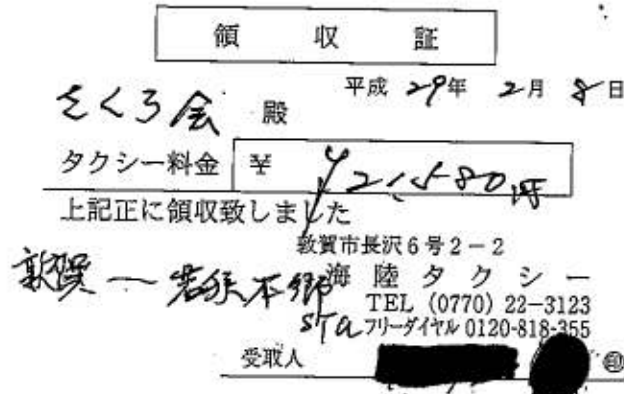 領収証
平成 29年 2月 8日
さくら会 殿
タクシー料金 ¥ ¥21,580円
上記正に領収致しました
敦賀市長沢6号2-2
敦賀 ー 若狭本郷 STa
海陸タクシー
TEL (0770) 22-3123
フリーダイヤル 0120-818-355
受取人 印